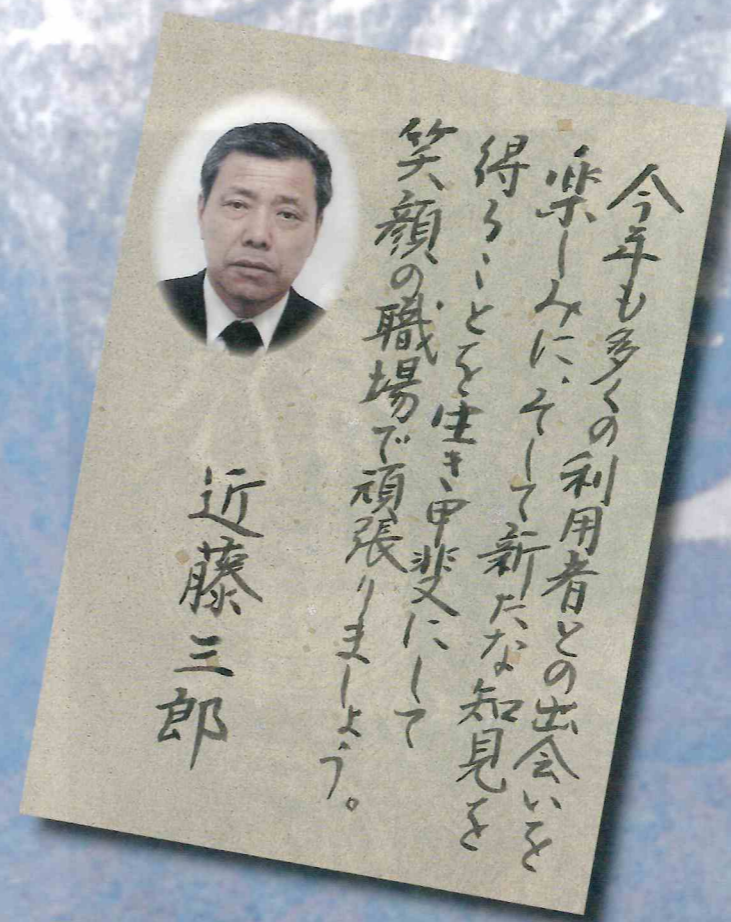 今年も多くの利用者との出会いを
楽しみに、そして新たな知見を
得ることを生き甲斐にして
笑顔の職場で頑張りましょう。
近藤三郎